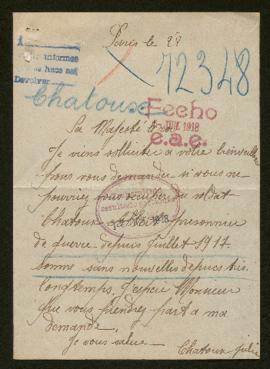 Paris le 28
informes
Devolver
12348
Chatoux
Fecho
JUL 1918
e.a.e.
Sa Majesté
Je viens sollicité a votre bienveillance
pour vous demander si vous ne
pourriez vous occuper du soldat
Chatoux prisonnier
de guerre depuis juillet 1917.
somme sans nouvelles depuis très
longtemps. J'espère Monsieur
que vous prendrez part a ma
demande.
Je vous salue
Chatoux